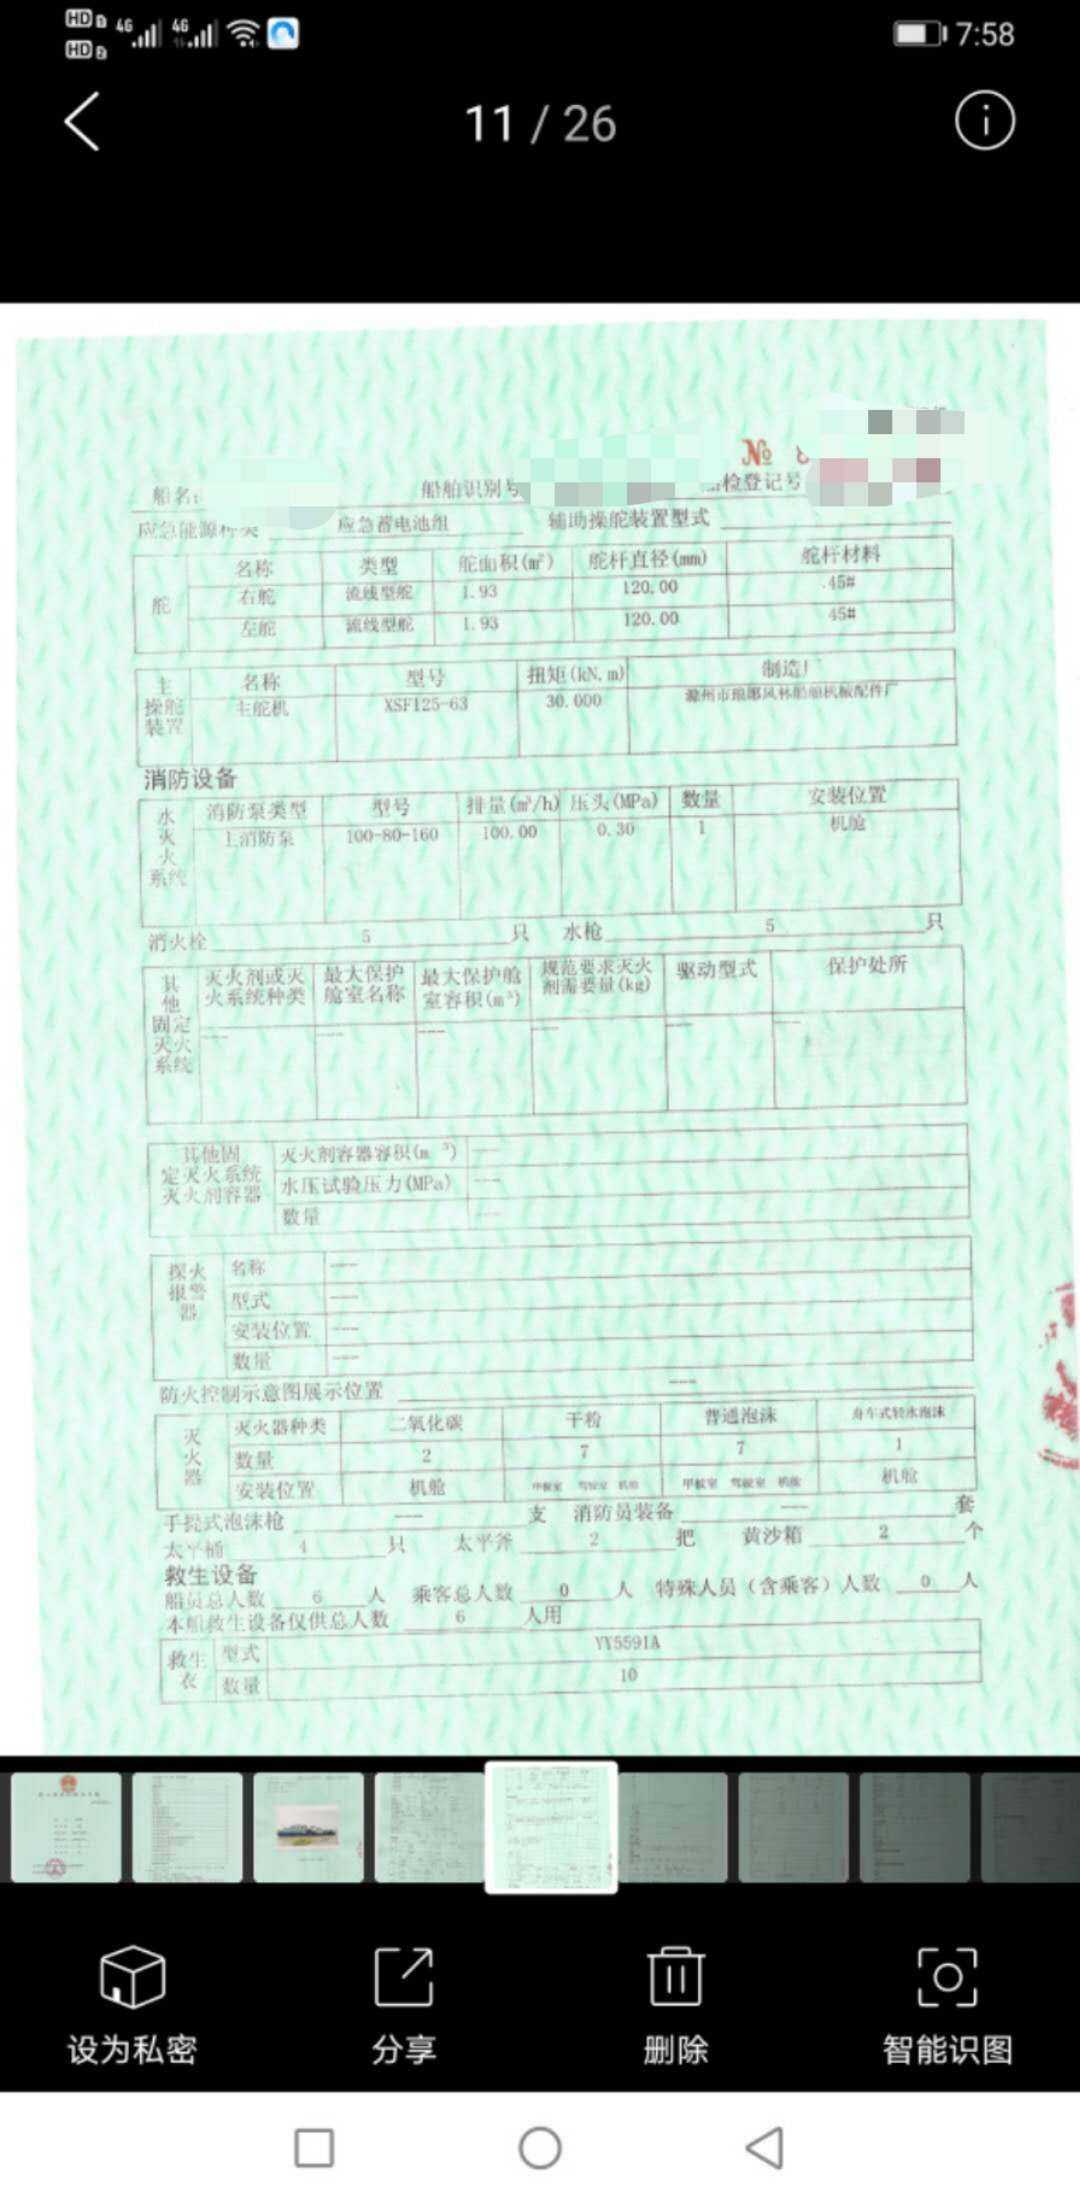 HD 1 4G 4G 7:58
HD 2
11 / 26
№
船名 船舶识别号 检登记号
应急能源种类 应急蓄电池组 辅助操舵装置型式
舵 名称 类型 舵面积(㎡) 舵杆直径(mm) 舵杆材料
右舵 流线型舵 1.93 120.00 45#
左舵 流线型舵 1.93 120.00 45#
主操舵装置 名称 型号 扭矩(kN.m) 制造厂
主舵机 XSF125-63 30.000 滁州市琅琊风林船舶机械配件厂
消防设备
水灭火系统 消防泵类型 型号 排量(m³/h) 压头(MPa) 数量 安装位置
主消防泵 100-80-160 100.00 0.30 1 机舱
消火栓 5 只 水枪 5 只
其他固定灭火系统 灭火剂或灭火系统种类 最大保护舱室名称 最大保护舱室容积(m³) 规范要求灭火剂需要量(kg) 驱动型式 保护处所
--- --- --- --- --- ---
其他固定灭火系统灭火剂容器 灭火剂容器容积(m³) ---
水压试验压力(MPa) ---
数量 ---
探火报警器 名称 ---
型式 ---
安装位置 ---
数量 ---
防火控制示意图展示位置 ---
灭火器 灭火器种类 二氧化碳 干粉 普通泡沫 舟车式轻水泡沫
数量 2 7 7 1
安装位置 机舱 甲板室 驾驶室 机舱 甲板室 驾驶室 机舱 机舱
手提式泡沫枪 --- 支 消防员装备 --- 套
太平桶 4 只 太平斧 2 把 黄沙箱 2 个
救生设备
船员总人数 6 人 乘客总人数 0 人 特殊人员（含乘客）人数 0 人
本船救生设备仅供总人数 6 人用
救生衣 型式 YY5591A
数量 10
设为私密 分享 删除 智能识图